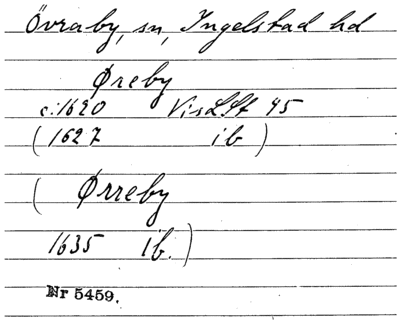 Övraby, sn, Ingelstad hd
Øreby
c. 1620 VisLSt 45
( 1627 ib )
( Ørreby
1635 ib. )
Nr 5459.